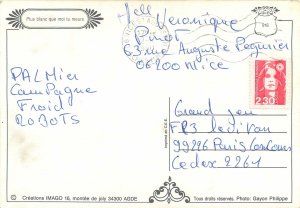 Plus blanc que moi tu meurs
Melle Veronique
Pinot
63 rue Auguste Pegurier
06200 Nice
PALMier
CAMPAGNE
Froid
ROBOTS
2,30
Grand jeu
FR3
99296 Paris Concours
Cedex 2261
© Créations IMAGO 16, montée de joly 34300 AGDE
Tous droits réservés. Photo: Gayon Philippe